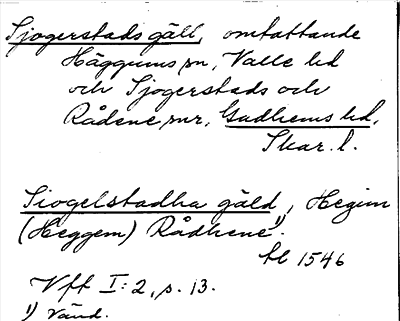 Sjogerstads gäll, omfattande
Häggums sn, Valle hd
och Sjogerstads och
Rådene snr, Gudhems hd,
Skar. l.
Siogelstadha gäld, Hegim
(Heggem) Rådhene¹⁾.
hl 1546
Vff I:2, s. 13.
¹⁾ Vänd.